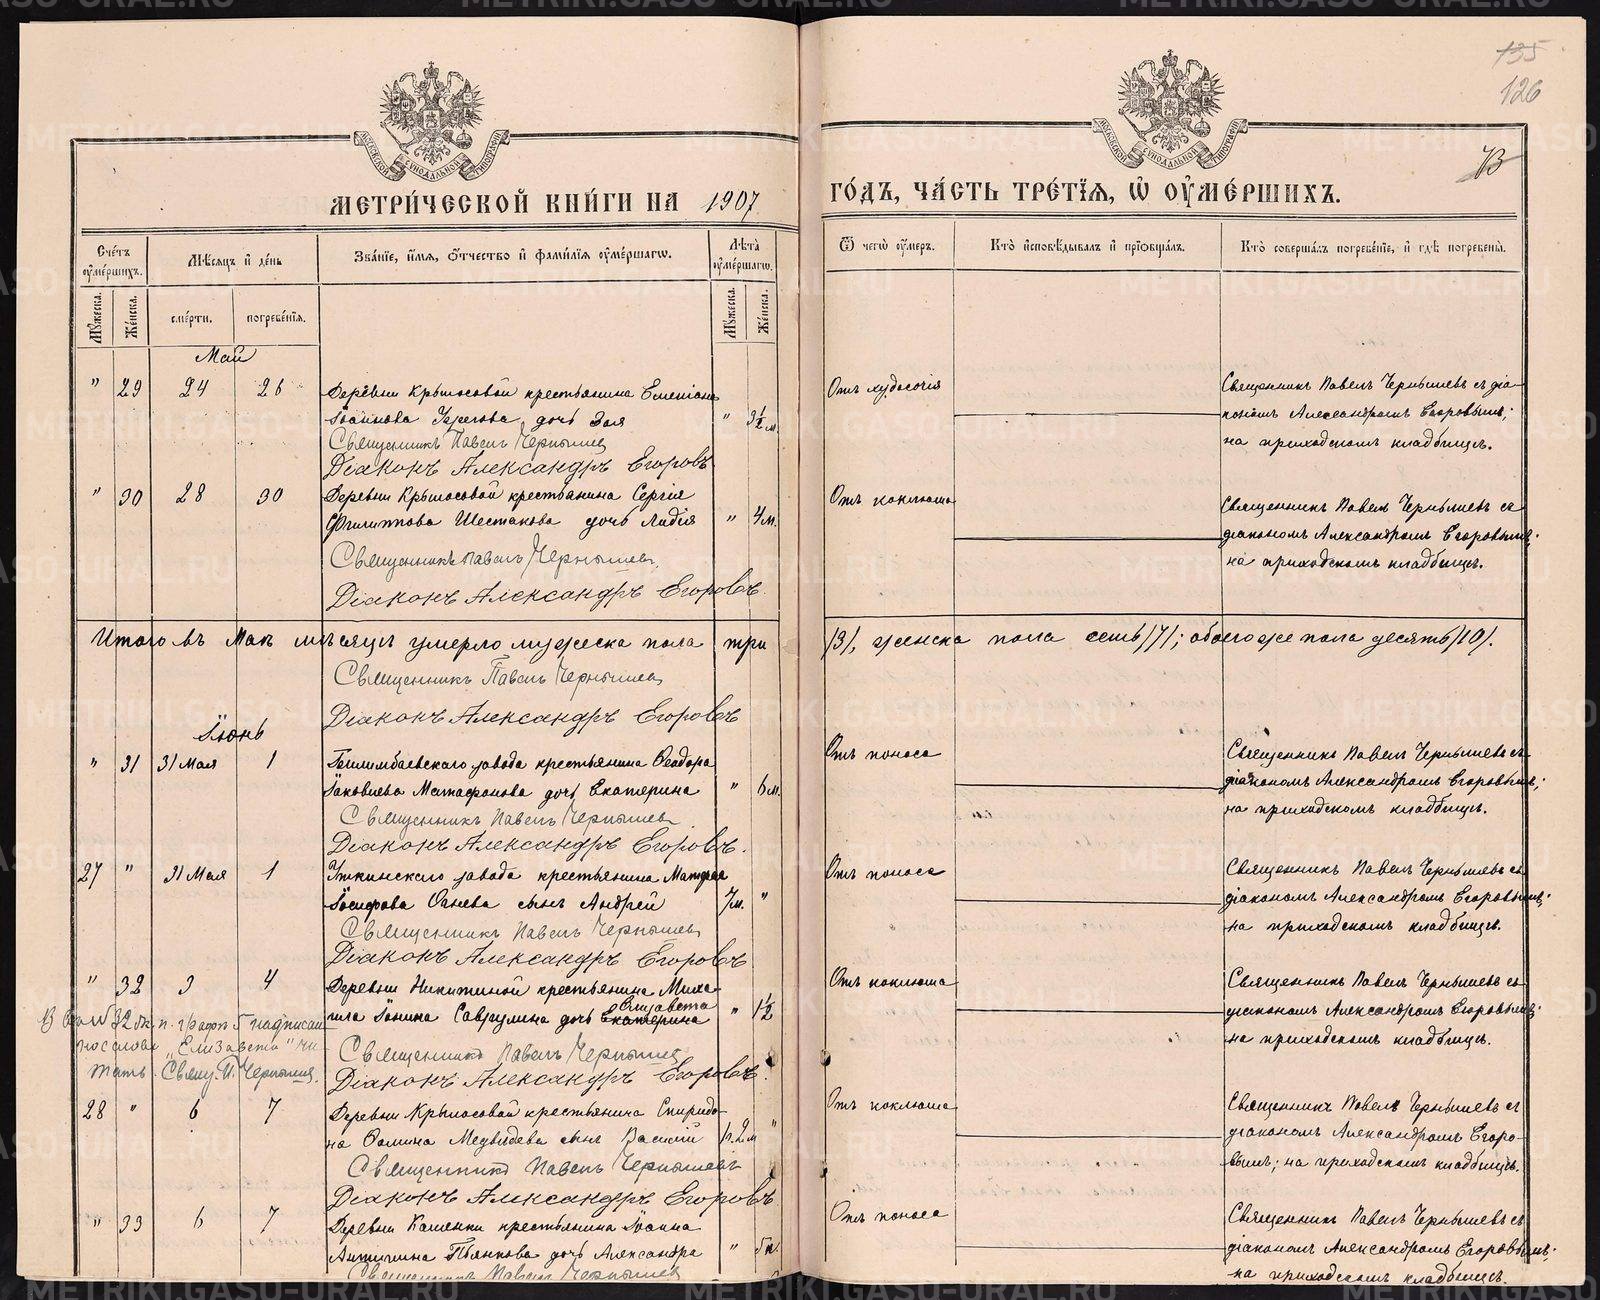 135
126
73
МЕТРИ́ЧЕСКОЙ КНИ́ГИ НА 1907
ГО́ДЪ, ЧА́СТЬ ТРЕ́ТЇЯ, Ѡ҆ ОУ҆МЕ́РШИХЪ.
Сче́тъ оу҆ме́ршихъ.
Мѣ́сяцъ и҆ де́нь
Зва́нїе, и҆́мя, ѻ҆́тчество и҆ фами́лїя оу҆ме́ршагѡ.
Лѣта̀ оу҆ме́ршагѡ.
Ѿ чегѡ̀ оу҆́меръ.
Кто̀ и҆сповѣ́дывалъ и҆ прїѡбща́лъ.
Кто̀ соверша́лъ погребе́нїе, и҆ гдѣ̀ погребены̀.
Мꙋ́жеска.
Же́нска.
сме́рти.
погребе́нїя.
Мꙋ́жеска.
Же́нска.
Май
" 29 24 26 Деревни Крылосовой крестьянина
Іоаннова дочь Зоя " 3½ м.
Священникъ Павелъ Чернышев
Діаконъ Александръ Егоровъ
Отъ худосочія
Священникъ Павелъ Чернышевъ съ діа-
кономъ Александромъ Егоровымъ;
на приходскомъ кладбищѣ.
" 30 28 30 Деревни Крылосовой крестьянина Сергія
Филиппова Шестакова дочь Лидія " 4 м.
Священникъ Павелъ Чернышев
Діаконъ Александръ Егоровъ
Отъ коклюша
Священникъ Павелъ Чернышевъ съ
діакономъ Александромъ Егоровымъ;
на приходскомъ кладбищѣ.
Итого въ Маѣ мѣсяцѣ умерло мужеска пола три /3/, женска пола семь /7/; обоего же пола десять /10/.
Священникъ Павелъ Чернышев
Діаконъ Александръ Егоровъ
Іюнь
" 31 31 Мая 1 Билимбаевскаго завода крестьянина Ѳеодора
Іаковлева Матафонова дочь Екатерина " 6 м.
Священникъ Павелъ Чернышев
Діаконъ Александръ Егоровъ.
Отъ поноса
Священникъ Павелъ Чернышевъ съ
діакономъ Александромъ Егоровымъ;
на приходскомъ кладбищѣ.
27 " 31 Мая 1 Уткинскаго завода крестьянина
Іосифова Огнева сынъ Андрей 7 м. "
Священникъ Павелъ Чернышев
Діаконъ Александръ Егоровъ
Отъ поноса
Священникъ Павелъ Чернышевъ съ
діакономъ Александромъ Егоровымъ;
на приходскомъ кладбищѣ.
" 32 3 4 Деревни Никитиной крестьянина Миха-
ила Іонина Саврулина дочь Екатерина Елизавета " 1½
В 32 п. графѣ 5 надписан
послова "Елизавета" чи-
тать. Свящ. П. Чернышев.
Священникъ Павелъ Чернышев
Діаконъ Александръ Егоровъ.
Отъ коклюша
Священникъ Павелъ Чернышевъ съ
діакономъ Александромъ Егоровымъ;
на приходскомъ кладбищѣ.
28 " 6 7 Деревни Крылосовой крестьянина Спиридо-
на Ѳомина Медвѣдева сынъ Василій 2 м "
Священникъ Павелъ Чернышевъ
Діаконъ Александръ Егоровъ
Отъ коклюша
Священникъ Павелъ Чернышевъ съ
діакономъ Александромъ Егоро-
вымъ; на приходскомъ кладбищѣ.
" 33 6 7 Деревни Каменки крестьянина Іоанна
Пьянкова дочь Александра "
Священникъ Павелъ Чернышев
Отъ поноса
Священникъ Павелъ Чернышевъ съ
діакономъ Александромъ Егоровымъ;
на приходскомъ кладбищѣ.
METRIKI.GASO-URAL.RU